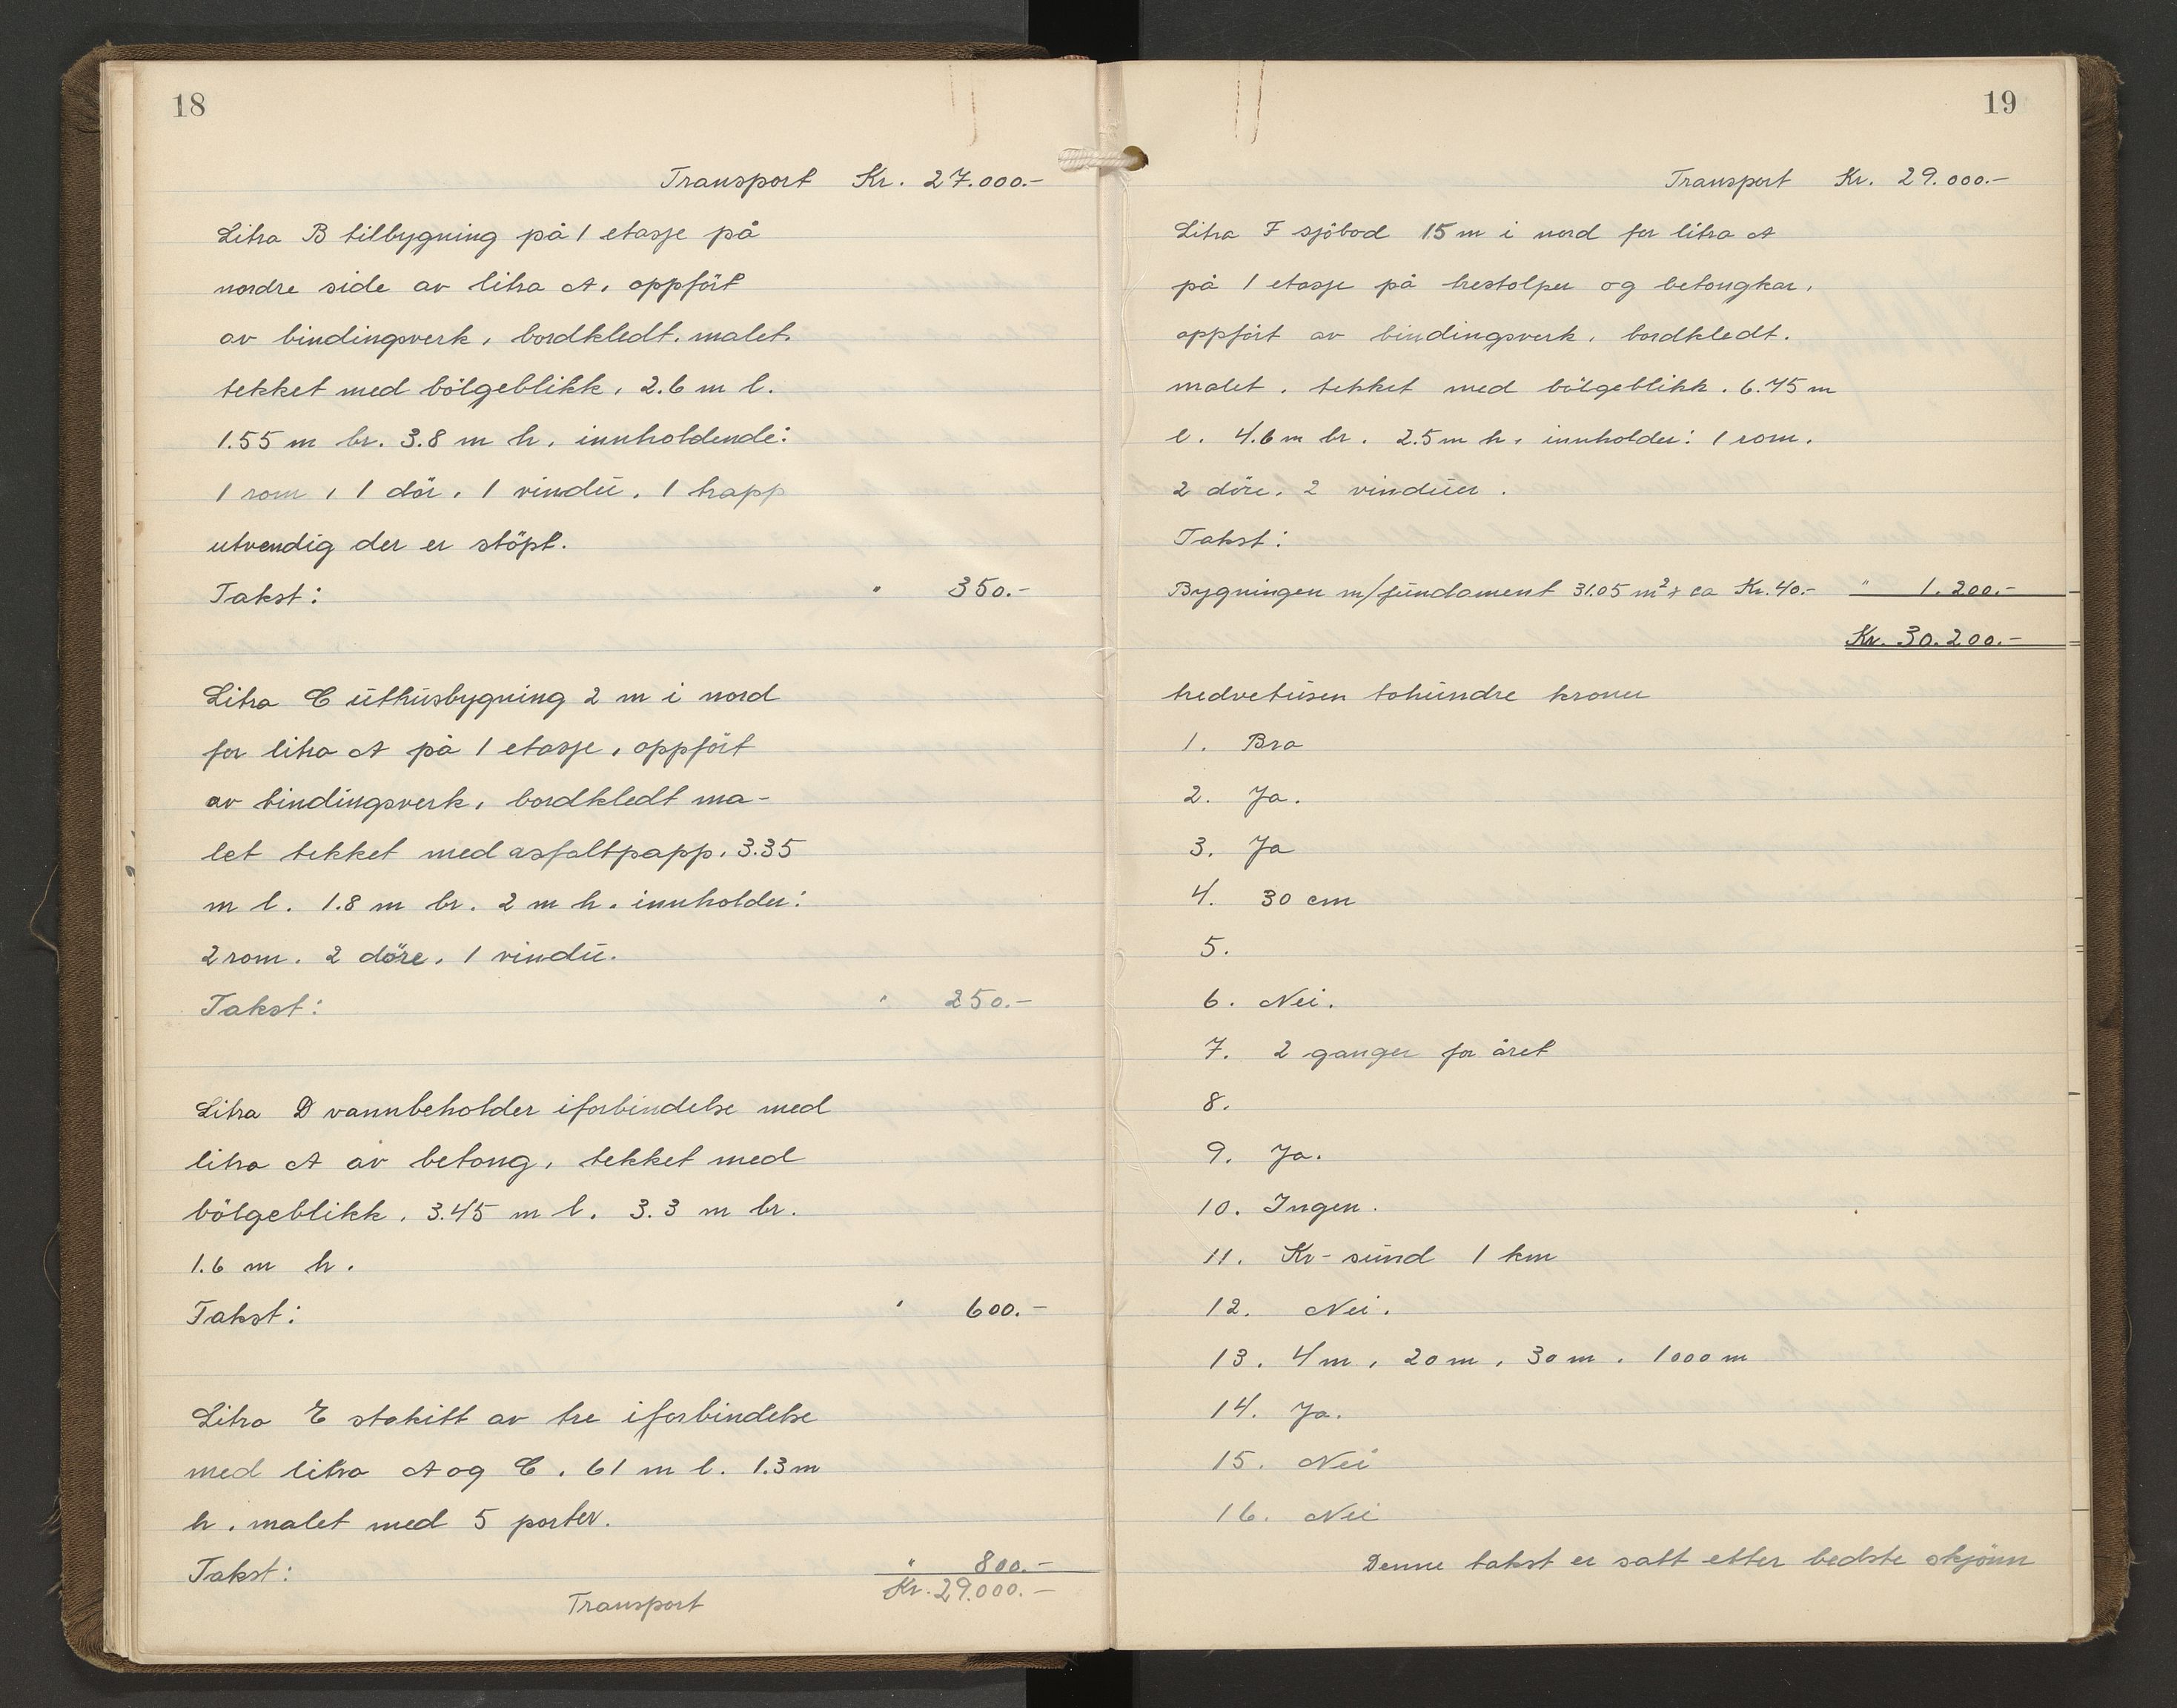 18
Transport Kr. 27.000.-
Litra B tilbygning på 1 etasje på
nordre side av litra A, oppfört
av bindingsverk, bordkledt, malet,
tekket med bölgeblikk, 2.6 m l.
1.55 m br. 3.8 m h, innholdende:
1 rom, 1 dör, 1 vindu, 1 trapp
utvendig der er stöpt.
Takst: " 350.-
Litra C uthusbygning 2 m i nord
for litra A på 1 etasje, oppfört
av bindingsverk, bordkledt ma-
let tekket med asfaltpapp, 3.35
m l. 1.8 m br. 2 m h. innholder:
2 rom. 2 döre, 1 vindu.
Takst: " 250.-
Litra D vannbeholder iforbindelse med
litra A av betong, tekket med
bölgeblikk, 3.45 m l. 3.3 m br.
1.6 m h.
Takst: " 600.-
Litra E stakitt av tre iforbindelse
med litra A og C, 61 m l. 1.3 m
h. malet med 5 porter.
Takst: " 800.-
Transport Kr. 29.000.-
19
Transport Kr. 29.000.-
Litra F sjöbod 15 m i nord for litra A
på 1 etasje på trestolper og betongkar,
oppfört av bindingsverk, bordkledt.
malet, tekket med bölgeblikk. 6.75 m
l. 4.6 m br. 2.5 m h, innholder: 1 rom.
2 döre, 2 vinduer.
Takst:
Bygningen m/fundament 31.05 m² x ca Kr. 40.- " 1.200.-
Kr. 30.200.-
tredvetusen tohundre kroner
1. Bra
2. Ja.
3. Ja
4. 30 cm
5.
6. Nei.
7. 2 ganger for året
8.
9. Ja.
10. Ingen.
11. Kr-sund 1 km
12. Nei.
13. 4 m, 20 m, 30 m, 1000 m
14. Ja.
15. Nei
16. Nei
Denne takst er satt etter bedste skjönn